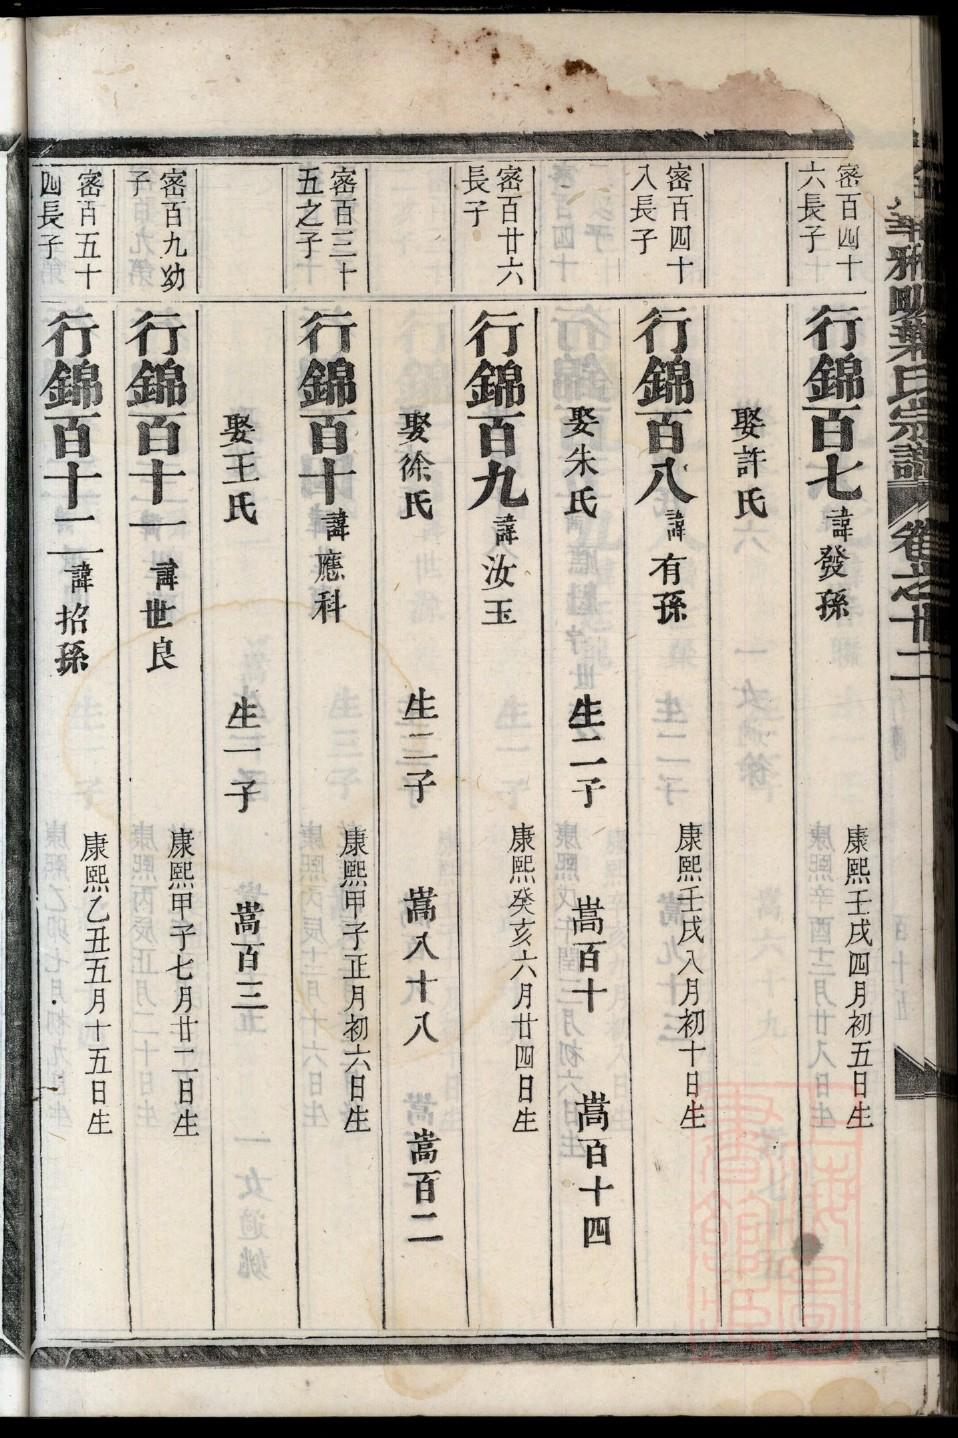 雅畈葉氏宗譜 卷之廿二
密百四十六長子
行錦百七 諱發孫 康熙壬戌四月初五日生
娶許氏
密百四十八長子
行錦百八 諱有孫 康熙壬戌八月初十日生
娶朱氏 生二子 嵩百十 嵩百十四
密百廿六長子
行錦百九 諱汝玉 康熙癸亥六月廿四日生
娶徐氏 生二子 嵩八十八 嵩百二
密百三十五之子
行錦百十 諱應科 康熙甲子正月初六日生
娶王氏 生一子 嵩百三
密百九幼子
行錦百十一 諱世良 康熙甲子七月廿二日生
密百五十四長子
行錦百十二 諱招孫 康熙乙丑五月十五日生